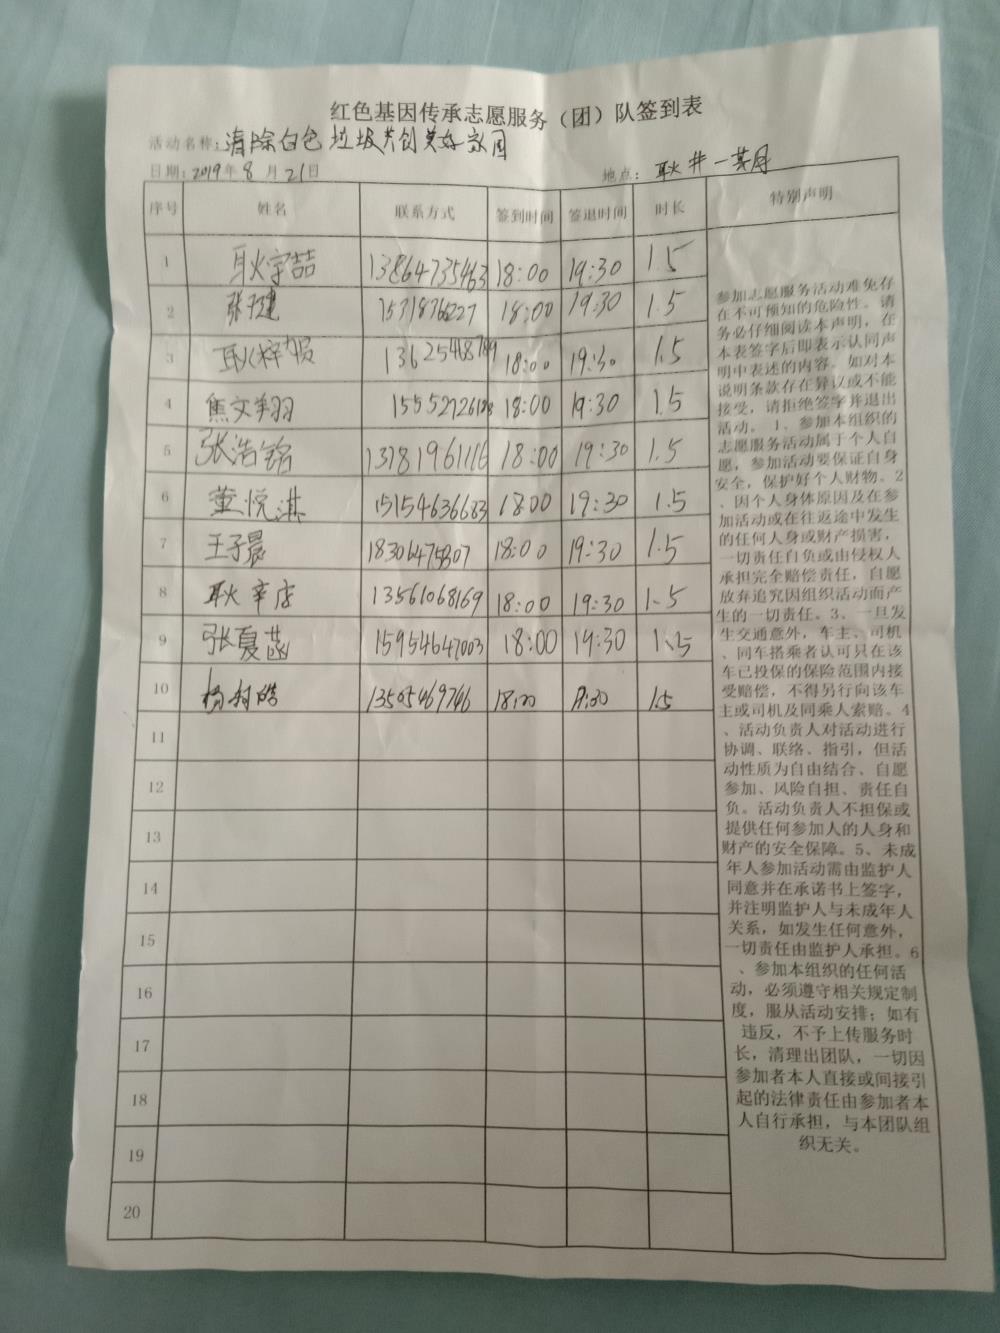 红色基因传承志愿服务（团）队签到表
活动名称：清除白色垃圾共创美好家园
日期：2019年8月21日 地点：耿井一
序号 姓名 联系方式 签到时间 签退时间 时长 特别声明
1 耿宇喆 13864735463 18:00 19:30 1.5
2 张 15318736227 18:00 19:30 1.5
3 耿梓 13625468789 18:00 19:30 1.5
4 焦文翔 18:00 19:30 1.5
5 张浩铭 13781961116 18:00 19:30 1.5
6 董悦淇 15154636683 18:00 19:30 1.5
7 王子晨 18306475807 18:00 19:30 1.5
8 耿辛店 13561068169 18:00 19:30 1.5
9 张夏菡 15954647003 18:00 19:30 1.5
10 杨 18:00 19:30 1.5
11
12
13
14
15
16
17
18
19
20
参加志愿服务活动难免存
在不可预知的危险性。请
务必仔细阅读本声明，在
本表签字后即表示认同声
明中表述的内容。如对本
说明条款存在异议或不能
接受，请拒绝签字并退出
活动。1、参加本组织的
志愿服务活动属于个人自
愿，参加活动要保证自身
安全，保护好个人财物。2
、因个人身体原因及在参
加活动或在往返途中发生
的任何人身或财产损害，
一切责任自负或由侵权人
承担完全赔偿责任，自愿
放弃追究因组织活动而产
生的一切责任。3、一旦发
生交通意外，车主、司机
、同车搭乘者认可只在该
车已投保的保险范围内接
受赔偿，不得另行向该车
主或司机及同乘人索赔。4
、活动负责人对活动进行
协调、联络、指引，但活
动性质为自由结合、自愿
参加、风险自担、责任自
负。活动负责人不担保或
提供任何参加人的人身和
财产的安全保障。5、未成
年人参加活动需由监护人
同意并在承诺书上签字，
并注明监护人与未成年人
关系，如发生任何意外，
一切责任由监护人承担。6
、参加本组织的任何活
动，必须遵守相关规定制
度，服从活动安排；如有
违反，不予上传服务时
长，清理出团队，一切因
参加者本人直接或间接引
起的法律责任由参加者本
人自行承担，与本团队组
织无关。